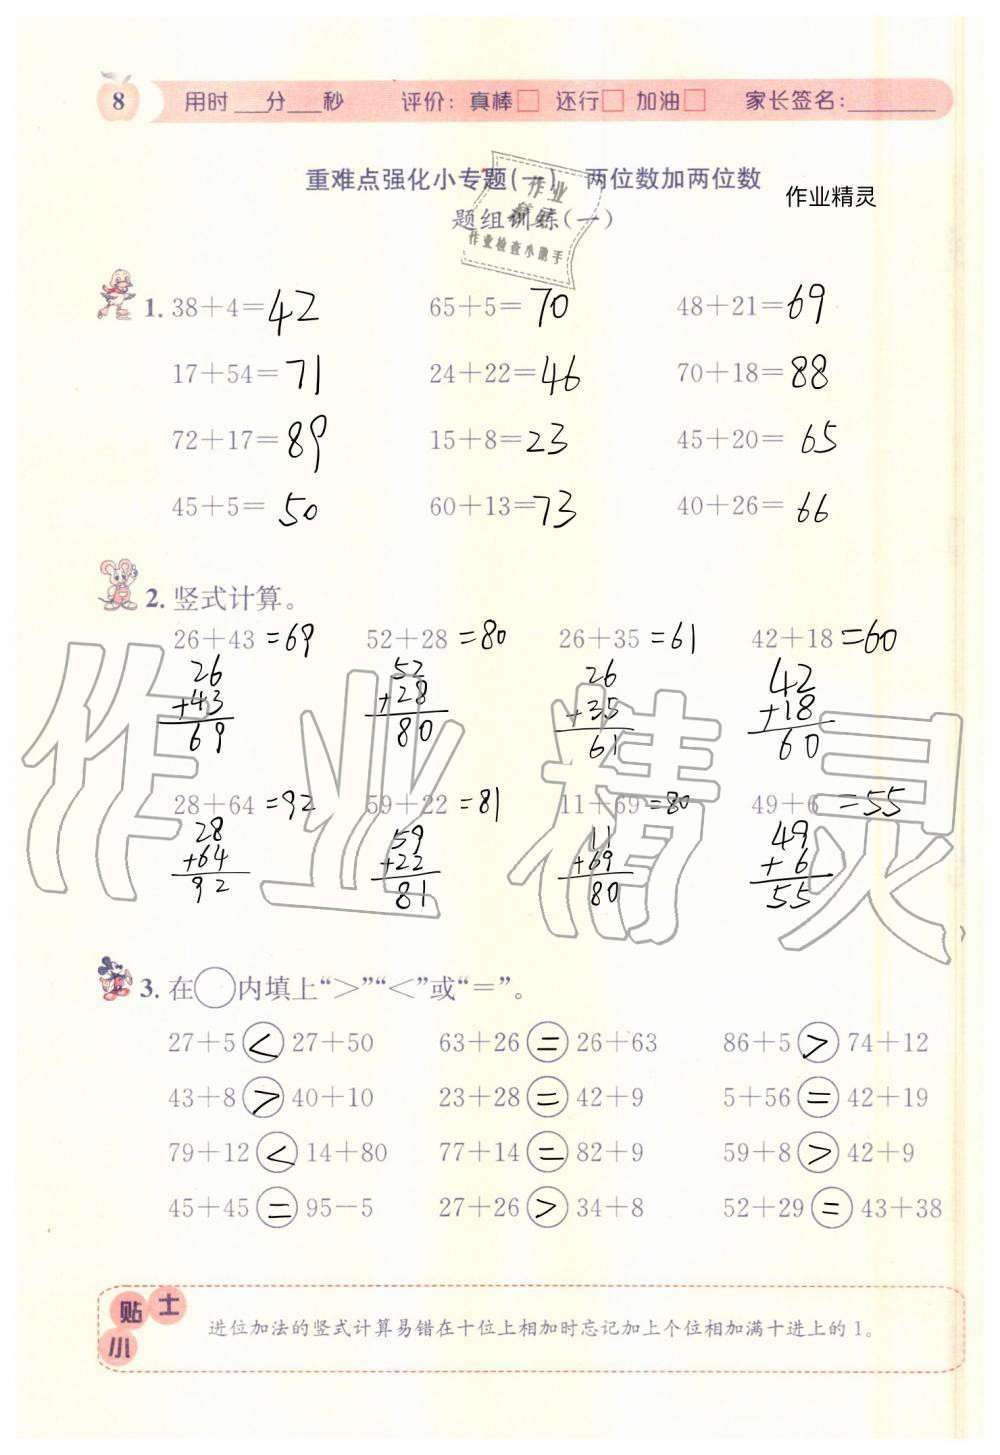 8 用时___分___秒 评价：真棒□ 还行□ 加油□ 家长签名：________
重难点强化小专题(一) 两位数加两位数
作业精灵
题组训练(一)
作业
作业检查小助手
1. 38+4=42 65+5=70 48+21=69
17+54=71 24+22=46 70+18=88
72+17=89 15+8=23 45+20=65
45+5=50 60+13=73 40+26=66
2. 竖式计算。
26+43=69 52+28=80 26+35=61 42+18=60
26 52 26 42
+43 +28 +35 +18
69 80 61 60
28+64=92 59+22=81 11+69=80 49+6=55
28 59 11 49
+64 +22 +69 +6
92 81 80 55
作业精灵
3. 在○内填上“>”“<”或“=”。
27+5<27+50 63+26=26+63 86+5>74+12
43+8>40+10 23+28=42+9 5+56=42+19
79+12<14+80 77+14=82+9 59+8>42+9
45+45=95-5 27+26>34+8 52+29=43+38
小贴士
进位加法的竖式计算易错在十位上相加时忘记加上个位相加满十进上的1。